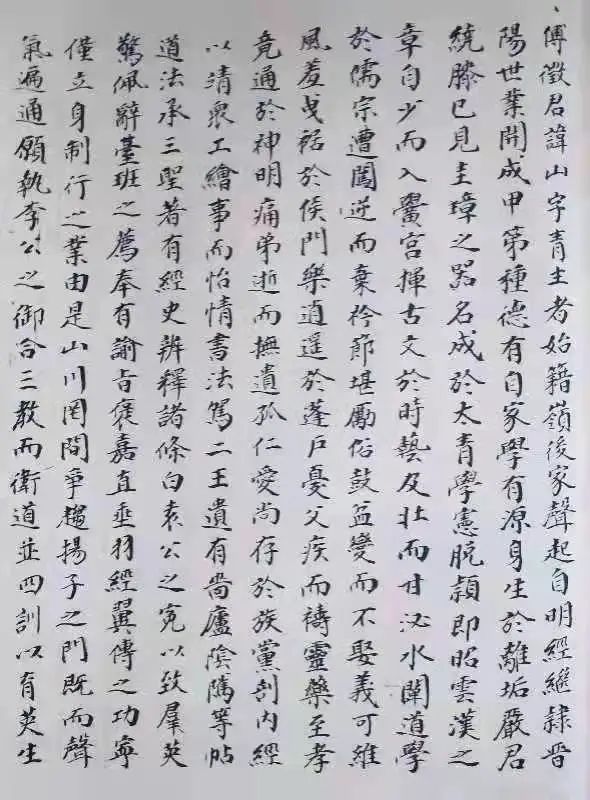 傅徵君諱山字青主者始籍嶺後家聲起自明經繼隸晋
陽世業開成甲第種德有自家學有源身生於離垢嚴君
繞膝已見圭璋之器名成於太青學憲脫穎即昭雲漢之
章自少而入黌宮揮古文於時藝及壯而甘泌水闡道學
於儒宗遭闖逆而棄衿節堪勵俗鼓盆變而不娶義可維
風羞曳裾於侯門樂逍遥於蓬戶憂父疾而禱靈藥至孝
竟通於神明痛弟逝而撫遺孤仁愛尚存於族黨剖內經
以清衆工繪事而怡情書法駕二王遺有嗇廬陰隲等帖
道法承三聖著有經史辨釋諸條白袁公之冤以致羣英
驚佩辭臺班之薦奉有諭旨褒嘉直垂羽經翼傳之功寧
僅立身制行之業由是山川罔問爭趨揚子之門既而聲
氣遍通願執李公之御合三教而衛道並四訓以育英生